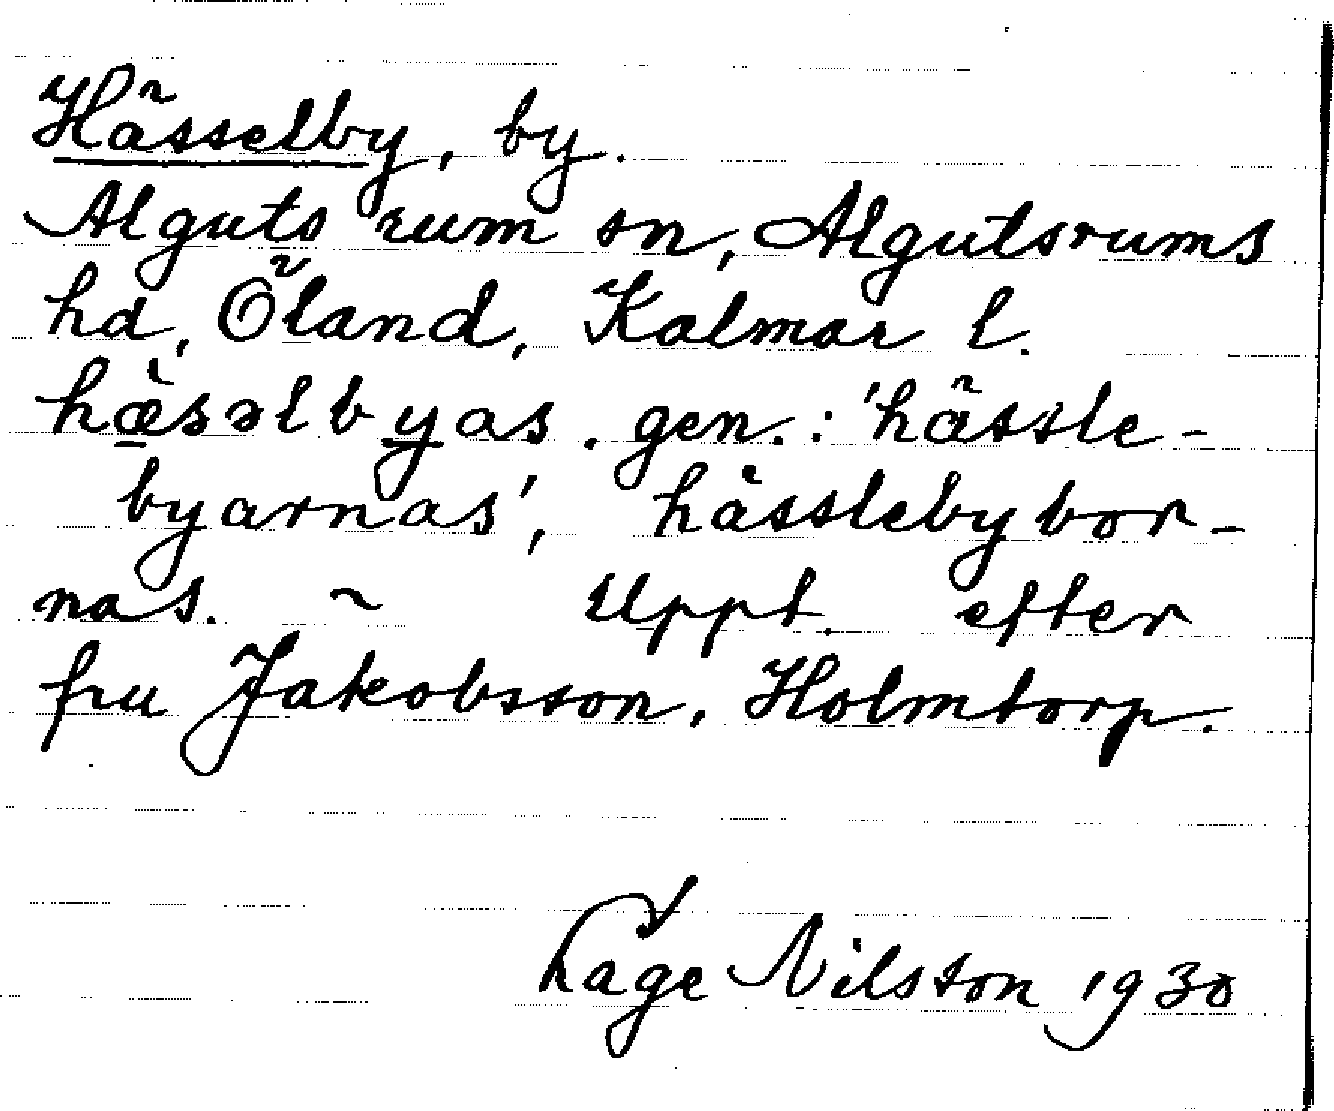 Hässelby, by.
Alguts rum sn, Algutsrums
hd, Öland, Kalmar l.
hæ̀səlbyas . gen. : 'hässle-
byarnas', hässlebybor-
nas. ~ Uppt. efter
fru Jakobsson, Holmtorp.
Åage Nilsson 1930